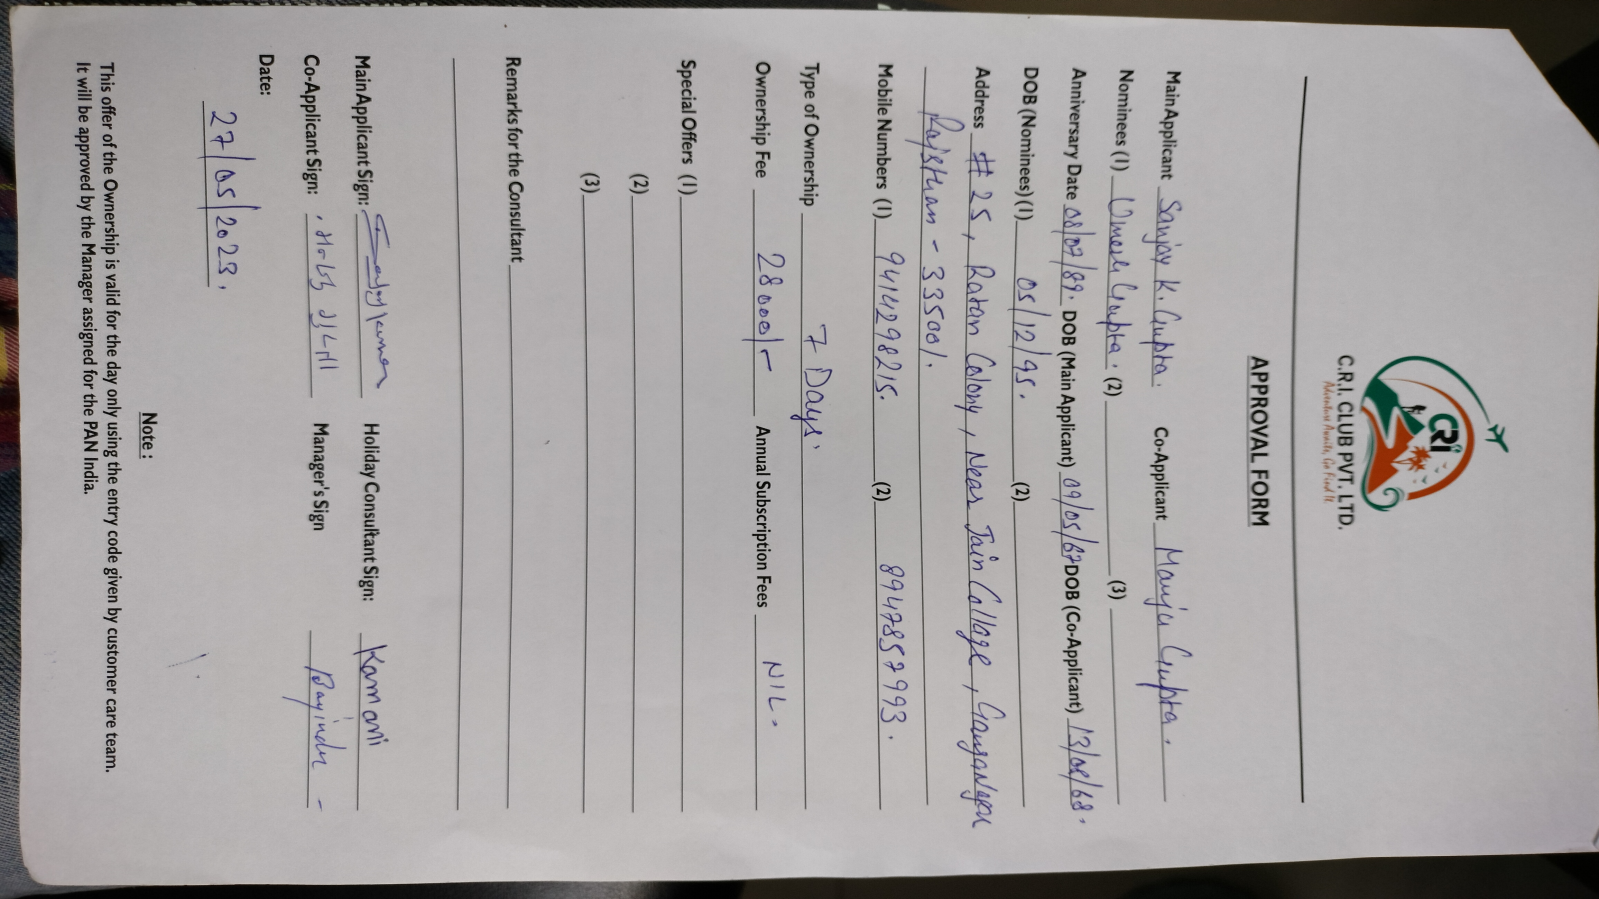 CRI
C.R.I. CLUB PVT. LTD.
Adventure Awaits, Go Find It.
APPROVAL FORM
Main Applicant Sanjay K. Gupta. Co-Applicant Manju Gupta.
Nominees (1) Umesh Gupta. (2) (3)
Anniversary Date 08/07/89. DOB (Main Applicant) 09/05/67 DOB (Co-Applicant) 13/08/68.
DOB (Nominees) (1) 05/12/95. (2)
Address # 25, Ratan Colony, Near Jain College, Ganganagar
Rajsthan - 335001.
Mobile Numbers (1) 9414298215. (2) 8947857993.
Type of Ownership 7 Days.
Ownership Fee 28000/- Annual Subscription Fees NIL.
Special Offers (1)
(2)
(3)
Remarks for the Consultant
Main Applicant Sign: Holiday Consultant Sign: Kamani
Co-Applicant Sign: Manager's Sign
Date: 27/05/2023.
Note :
This offer of the Ownership is valid for the day only using the entry code given by customer care team.
It will be approved by the Manager assigned for the PAN India.